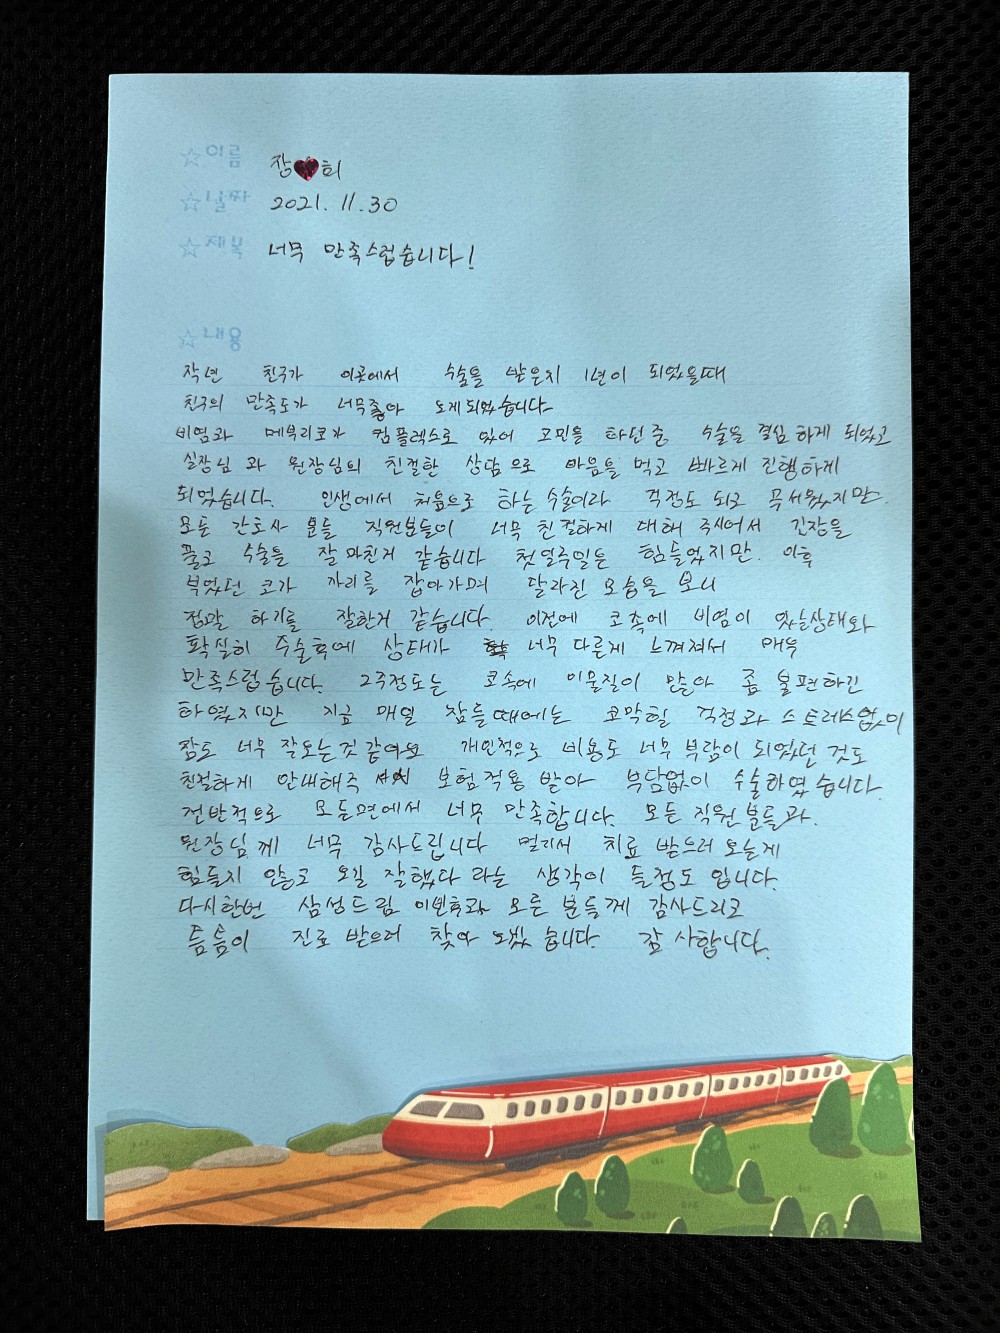 ☆이름 장 희
☆날짜 2021. 11. 30
☆제목 너무 만족스럽습니다!
☆내용
작년 친구가 이곳에서 수술을 받은지 1년이 되었을때
친구의 만족도가 너무좋아 오게되었습니다
비염과 메부리코가 컴플렉스로 있어 고민을 하던중 수술을 결심하게 되었고
실장님과 원장님의 친절한 상담으로 마음을 먹고 빠르게 진행하게
되었습니다. 인생에서 처음으로 하는수술이라 걱정도 되고 무서웠지만
모든 간호사 분들 직원분들이 너무 친절하게 대해 주셔서 긴장을
풀고 수술을 잘마친거 같습니다 첫일주일은 힘들었지만. 이후
부었던 코가 자리를 잡아가며 달라진 모습을 보니
정말 하기를 잘한거 같습니다. 이전에 코속에 비염이 있는상태와
확실히 수술후에 상태가 너무 다른게 느껴져서 매우
만족스럽습니다. 2주정도는 코속에 이물질이 많아 좀 불편하긴
하였지만 지금 매일 잠들때에는 코막힐 걱정과 스트레스없이
잠도 너무 잘오는것 같아요 개인적으로 비용도 너무 부담이 되었던 것도
친절하게 안내해주셔서 보험적용 받아 부담없이 수술하였습니다.
전반적으로 모든면에서 너무 만족합니다. 모든 직원분들과.
원장님께 너무 감사드립니다 멀리서 치료 받으러 오는게
힘들지 않고 오길 잘했다 라는 생각이 들정도 입니다.
다시한번 삼성드림 이빈후과 모든 분들께 감사드리고
틈틈이 진료 받으러 찾아 오겠습니다. 감사합니다.